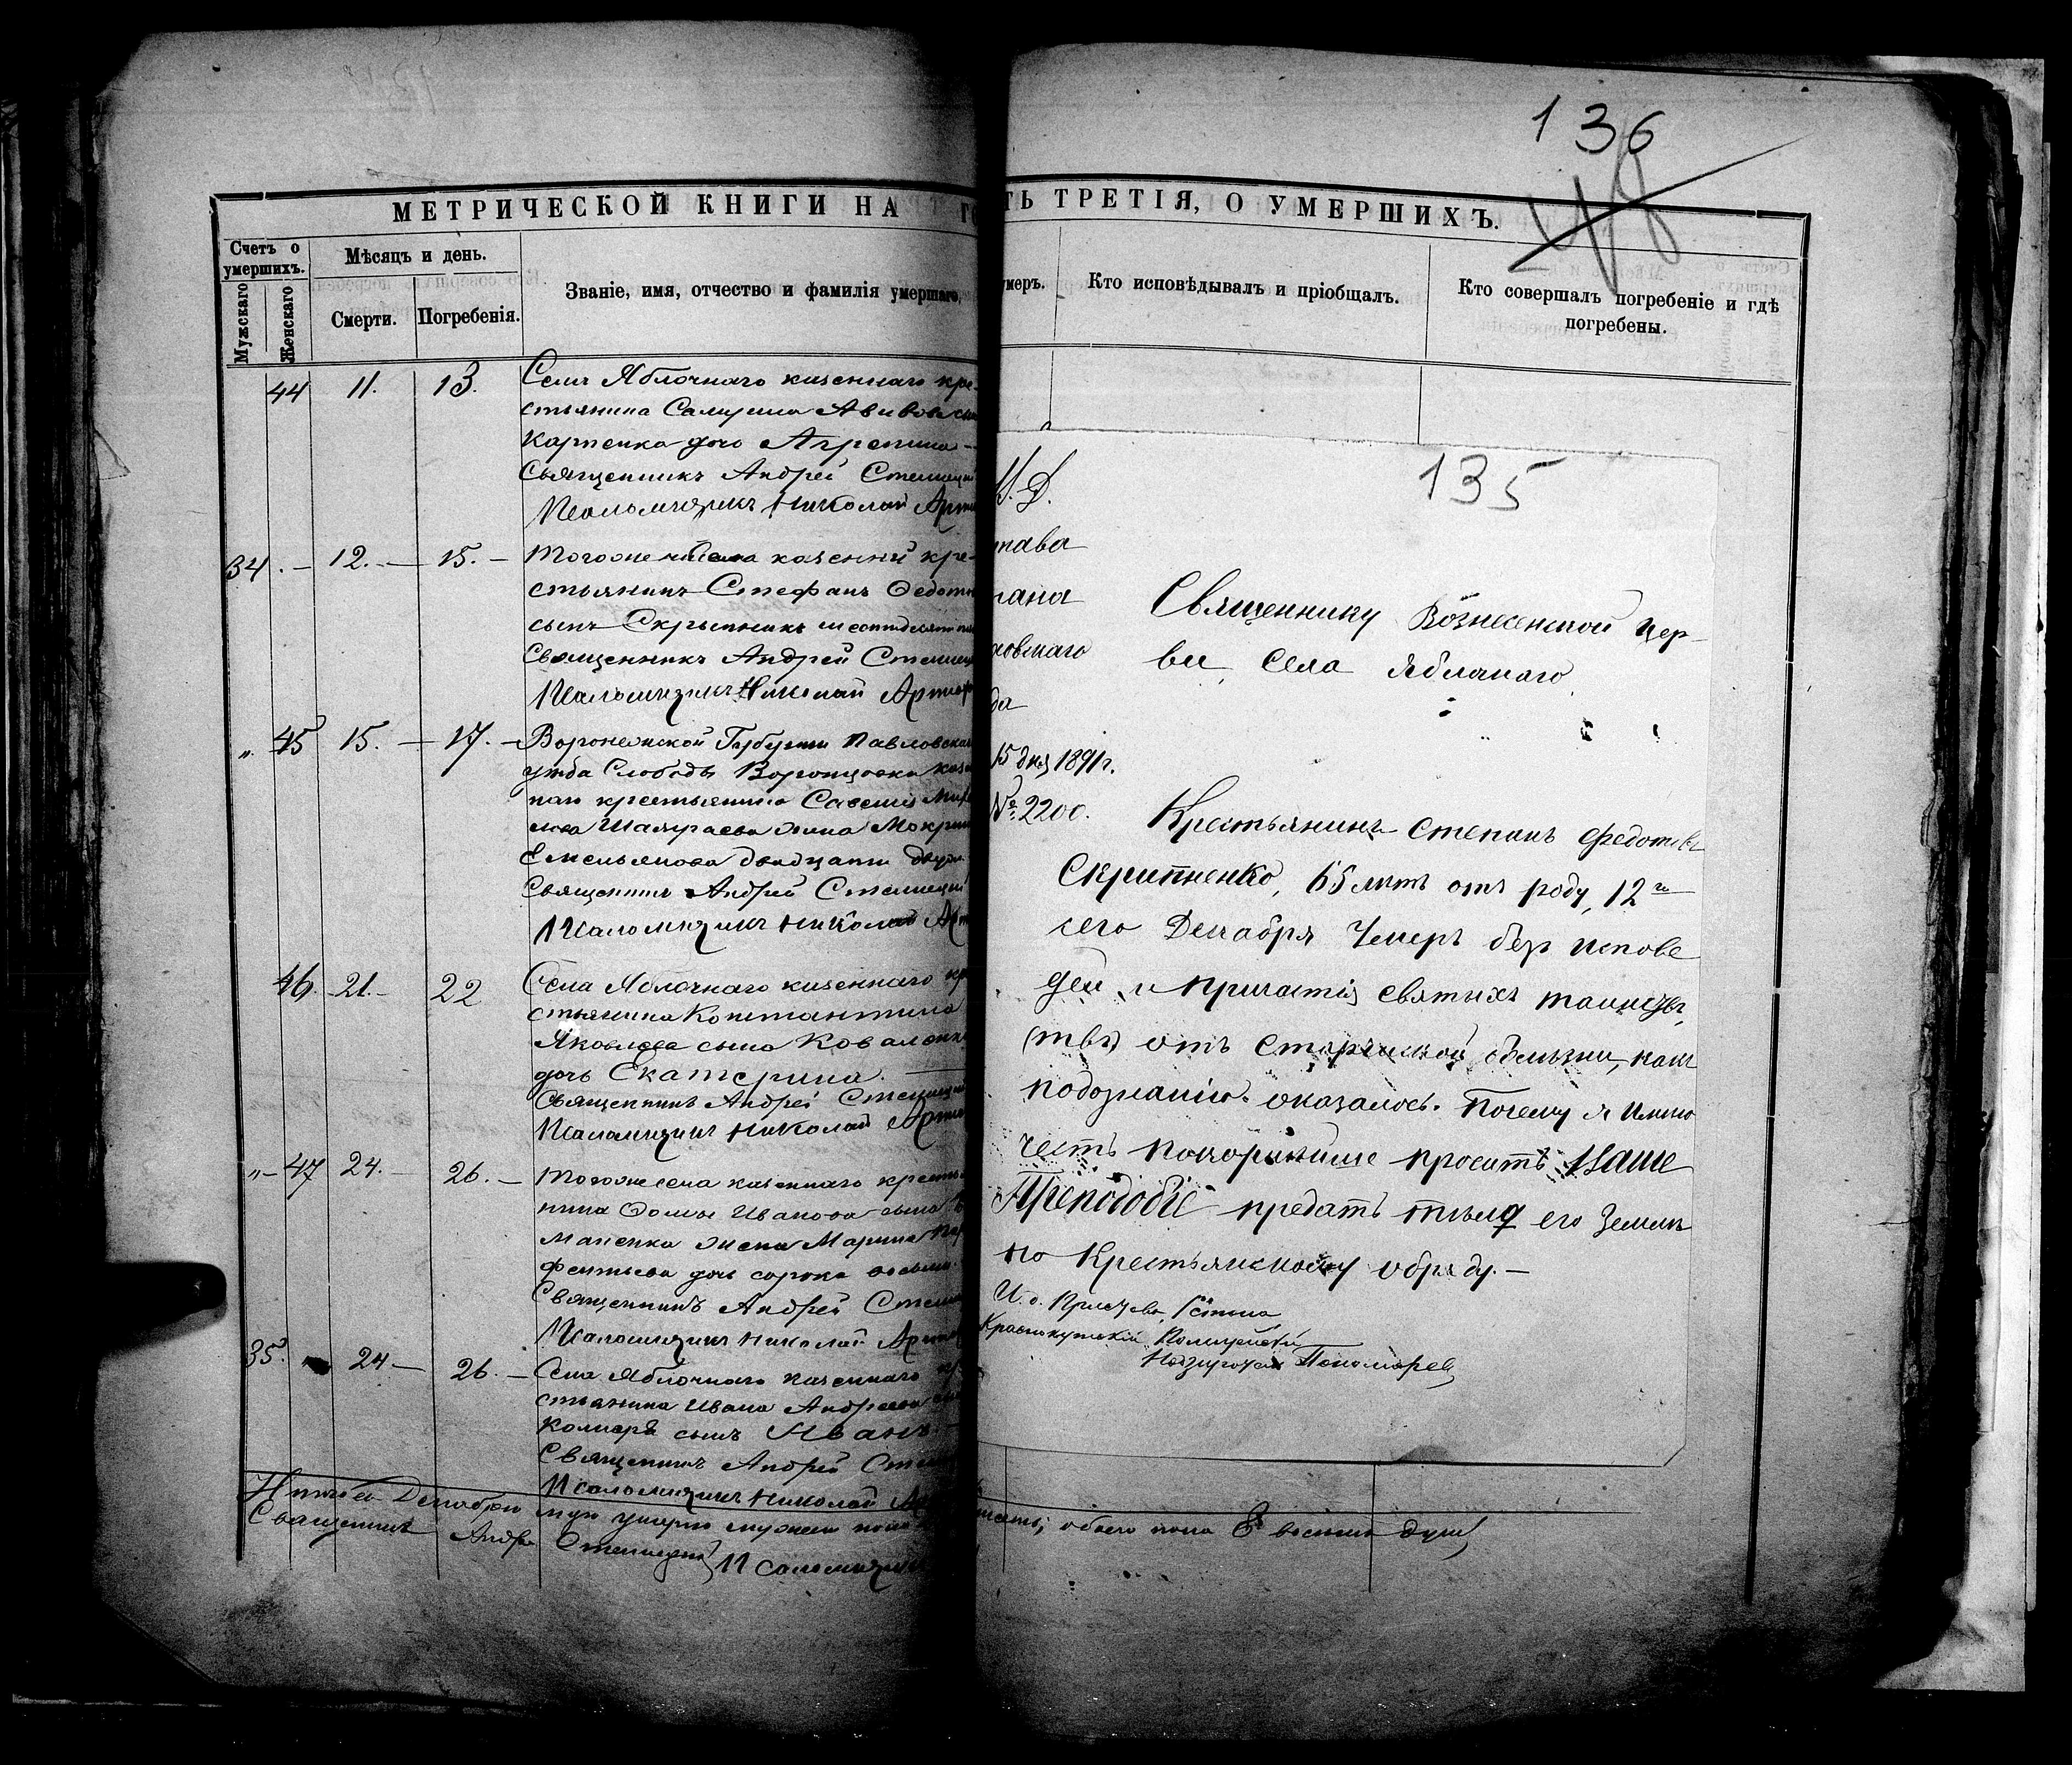 136
48
МЕТРИЧЕСКОЙ КНИГИ НА ГО
ТЬ ТРЕТІЯ, О УМЕРШИХЪ.
Счетъ о умершихъ.
Мужскаго
Женскаго
Мѣсяцъ и день.
Смерти.
Погребенія.
Званіе, имя, отчество и фамилія умершаго,
умеръ.
Кто исповѣдывалъ и пріобщалъ.
Кто совершалъ погребеніе и гдѣ
погребены.
44 11. 13. Села Яблочнаго казеннаго кре-
стьянина
Карпенка дочь Агрепина
Священникъ Андрей
Псаломщикъ Николай
34. – 12. – 15. – Тогоже села казенный кре-
стьянинъ Стефанъ Федото
сынъ Скрыпникъ
Священникъ Андрей
Псаломщикъ Николай
„ 45 15. – 17. – Воронежской Губерніи Павловска
уѣзда Слободы Воронцовка каз
наго крестьянина Савелія
жена Мокрин
Емельянова двадцати двух
Священникъ Андрей
Псаломщикъ Николай
46. – 21. – 22 Села Яблочнаго казеннаго кр
стьянина Константина
Яковлева сына Коваленк
дочь Екатерина.
Священникъ Андрей
Псаломщикъ Николай
„ – 47 24. – 26. – Тогоже села казеннаго кресть
нина Фомы Иванова сына
жена Марина
дочь сорока восьми
Священникъ Андрей
Псаломщикъ Николай
35. 24 – 26. – Села Яблочнаго казеннаго кр
стьянина Ивана Андреева
сынъ Иванъ
Священникъ Андрей
Псаломщикъ Николай
Итого въ Декабрѣ умерло мужеска пола
Священникъ Андре
Псаломщик
обоего пола 8 восемь душъ
135
М. Д.
тава
рана
ковскаго
да
15 дня 1891 г.
№ 2200.
Священнику Вознесенской цер-
вы, села Яблочнаго
Крестьянинъ Степанъ Федотовъ
Скрипненко, 65 лѣтъ отъ роду, 12го
сего Декабря Умеръ безъ испове
деи и причастія святыхъ таинсъ
ствъ отъ Старческой болѣзни, какъ
подознанію оказалось. Почему я имѣю
честь покорнѣйше просить Ваше
Преподобіе предать тѣло его Землѣ
по Крестьянскому обряду. –
И. о. Пристава
Краснокутскій Полицейскій
Надзиратель Пономарев